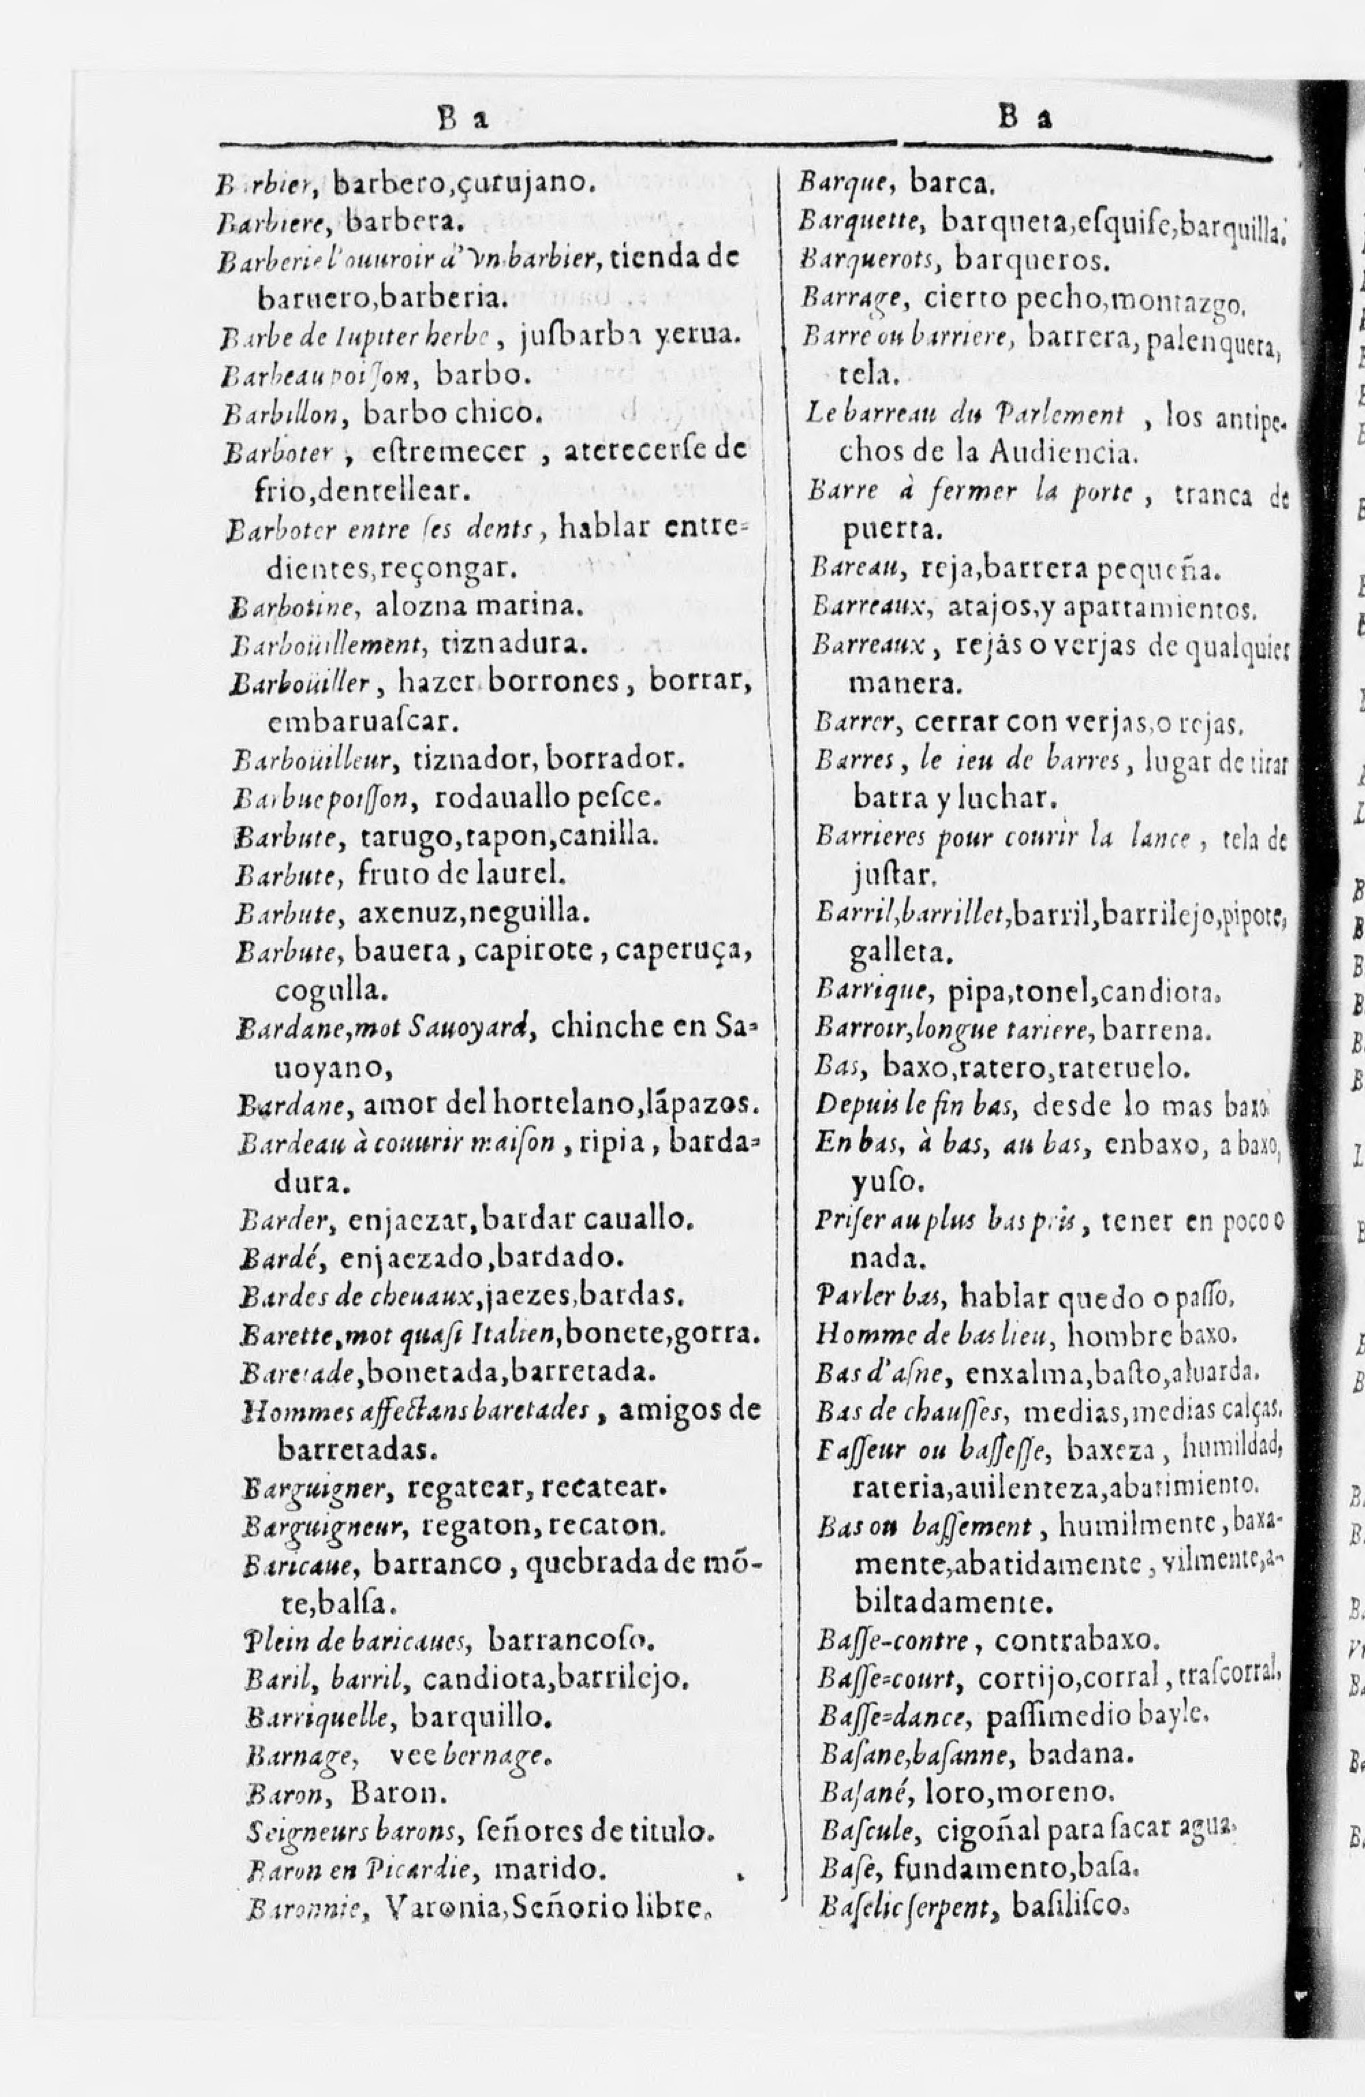 B a
Barbier, barbero,çurujano.
Barbiere, barbera.
Barberie l'ouuroir d'vn barbier, tienda de
baruero,barberia.
Barbe de Iupiter herbe, juſbarba yerua.
Barbeau poiſſon, barbo.
Barbillon, barbo chico.
Barboter, eſtremecer, aterecerſe de
frio,dentellear.
Barboter entre ſes dents, hablar entre=
dientes,reçongar.
Barbotine, alozna marina.
Barboüillement, tiznadura.
Barboüiller, hazer borrones, borrar,
embaruaſcar.
Barboüilleur, tiznador, borrador.
Barbue poiſſon, rodauallo peſce.
Barbute, tarugo,tapon,canilla.
Barbute, fruto de laurel.
Barbute, axenuz,neguilla.
Barbute, bauera, capirote, caperuça,
cogulla.
Bardane,mot Sauoyard, chinche en Sa=
uoyano,
Bardane, amor del hortelano,lãpazos.
Bardeau à couurir maiſon, ripia, barda=
dura.
Barder, enjaezar,bardar cauallo.
Bardé, enjaezado,bardado.
Bardes de cheuaux,jaezes,bardas.
Barette,mot quaſi Italien,bonete,gorra.
Baretade,bonetada,barretada.
Hommes affectans baretades, amigos de
barretadas.
Barguigner, regatear, recatear.
Barguigneur, regaton, recaton.
Baricaue, barranco, quebrada de mõ-
te,balſa.
Plein de baricaues, barrancoſo.
Baril, barril, candiota,barrilejo.
Barriquelle, barquillo.
Barnage, vee bernage.
Baron, Baron.
Seigneurs barons, ſeñores de titulo.
Baron en Picardie, marido.
Baronnie, Varonia,Señorio libre.
B a
Barque, barca.
Barquette, barqueta,eſquife,barquilla.
Barquerots, barqueros.
Barrage, cierto pecho,montazgo.
Barre ou barriere, barrera, palenquera,
tela.
Le barreau du Parlement, los antipe-
chos de la Audiencia.
Barre à fermer la porte, tranca de
puerta.
Bareau, reja,barrera pequeña.
Barreaux, atajos,y apartamientos.
Barreaux, rejas o verjas de qualquier
manera.
Barrer, cerrar con verjas,o rejas.
Barres, le ieu de barres, lugar de tirar
barra y luchar.
Barrieres pour courir la lance, tela de
juſtar.
Barril,barrillet,barril,barrilejo,pipote,
galleta.
Barrique, pipa,tonel,candiota.
Barroir,longue tariere, barrena.
Bas, baxo,ratero,rateruelo.
Depuis le fin bas, desde lo mas baxo.
En bas, à bas, au bas, enbaxo, a baxo,
yuſo.
Priſer au plus bas pris, tener en poco o
nada.
Parler bas, hablar quedo o paſſo.
Homme de bas lieu, hombre baxo.
Bas d'aſne, enxalma,baſto,aluarda.
Bas de chauſſes, medias,medias calças.
Baſſeur ou baſſeſſe, baxeza, humildad,
rateria,auilenteza,abatimiento.
Bas ou baſſement, humilmente, baxa-
mente,abatidamente, vilmente,a-
biltadamente.
Baſſe-contre, contrabaxo.
Baſſe=court, cortijo,corral, traſcorral.
Baſſe=dance, paſſimedio bayle.
Baſane,baſanne, badana.
Baſané, loro,moreno.
Baſcule, cigoñal para ſacar agua.
Baſe, fundamento,baſa.
Baſelic ſerpent, baſiliſco.